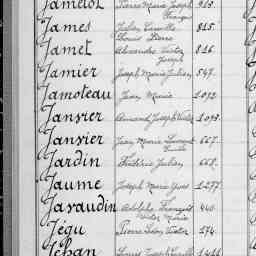 Jamelot Pierre Marie Joseph 915.
François
James Julien Camille 815.
Thomas Pierre
Jamet Alexandre Victor 816.
Joseph
Jamier Joseph Marie Julien 547.
Jamoteau Jean Marie 1092.
Janvier Armand Joseph Victor 1093.
Janvier Jean Marie Laurent 667.
Jardin Frédéric Julien 668.
Jaume Joseph Marie Yves 1277.
Javaudin Adolphe François 440.
Victor Marie
Jégu Pierre Léon Victor 174.
Jéhan Louis Joseph